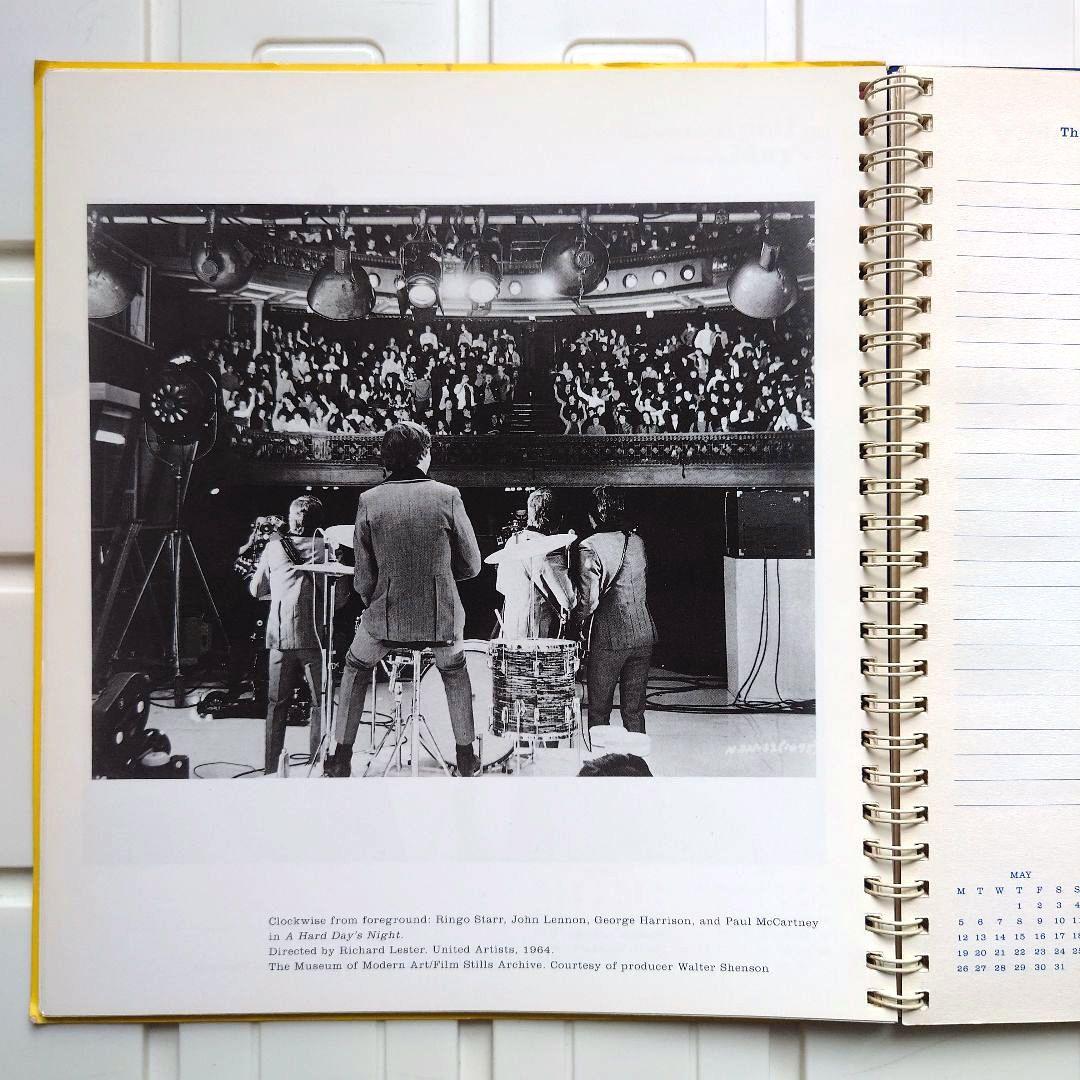 Clockwise from foreground: Ringo Starr, John Lennon, George Harrison, and Paul McCartney
in A Hard Day's Night.
Directed by Richard Lester. United Artists, 1964.
The Museum of Modern Art/Film Stills Archive. Courtesy of producer Walter Shenson
Th
MAY
M T W T F S S
1 2 3 4
5 6 7 8 9 10 11
12 13 14 15 16 17 18
19 20 21 22 23 24 25
26 27 28 29 30 31